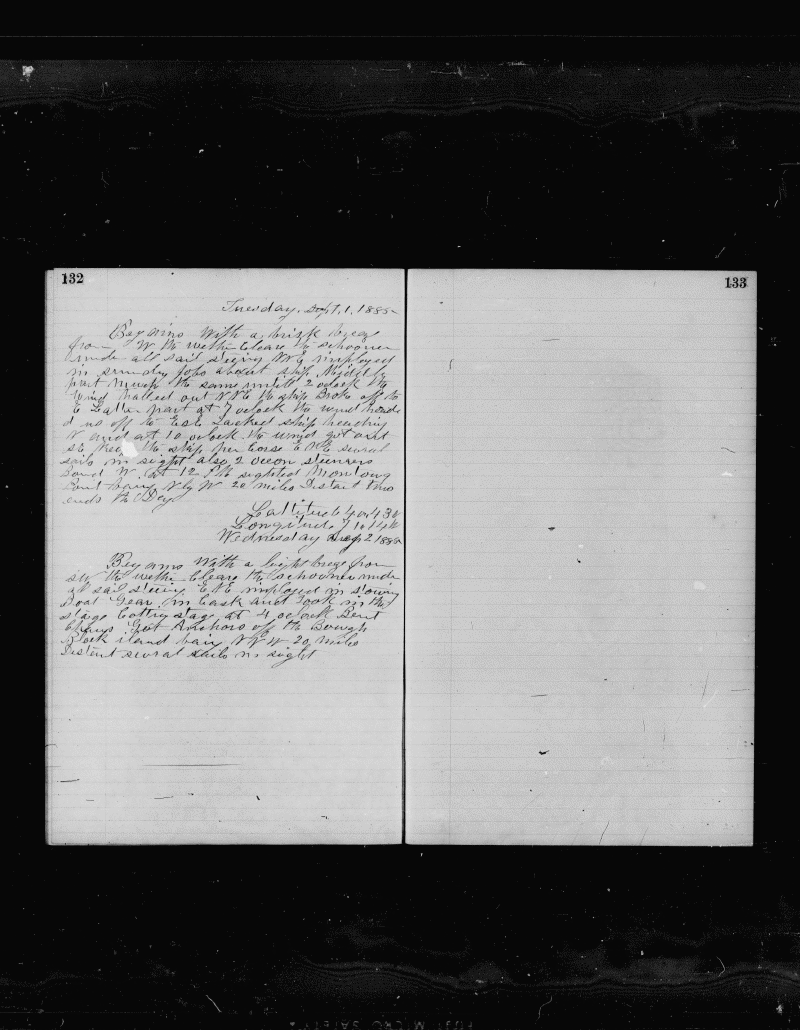 132
Tuesday. Sept, 1, 1885
Begains With a brisk breze
from W the wether Cleare the schooner
under all sail steering NNE imployed
in srunday Jobs about ship Middle
part much the same untill 2 oclock the
wind halled out NNE the ship Broke off to
E Latter part at 7 oclock the wind heade
d us off to ESE tacked ship heading
N and at 10 oclock the wind got out
the ship her Corse ENE sevral
sails in sight also 2 ocean steemers
bound W. at 12 PM sighted
Point baring N by W 20 miles Distent thus
ends the Day
Lattitude 40.43 N
Longitude 71.14 W
Wednesday Sep 2 1885
Begains With a light breze from
SW the wether Cleare the schooner under
all sail steering ENE imployed in stowing
Boat Gear in Cask and took in the
stage Cutting stage at 4 oclock Bent
Chains Got Anchors off the Bough
Block iland baring NNW 20, miles
Distent sevral sails in sight
133